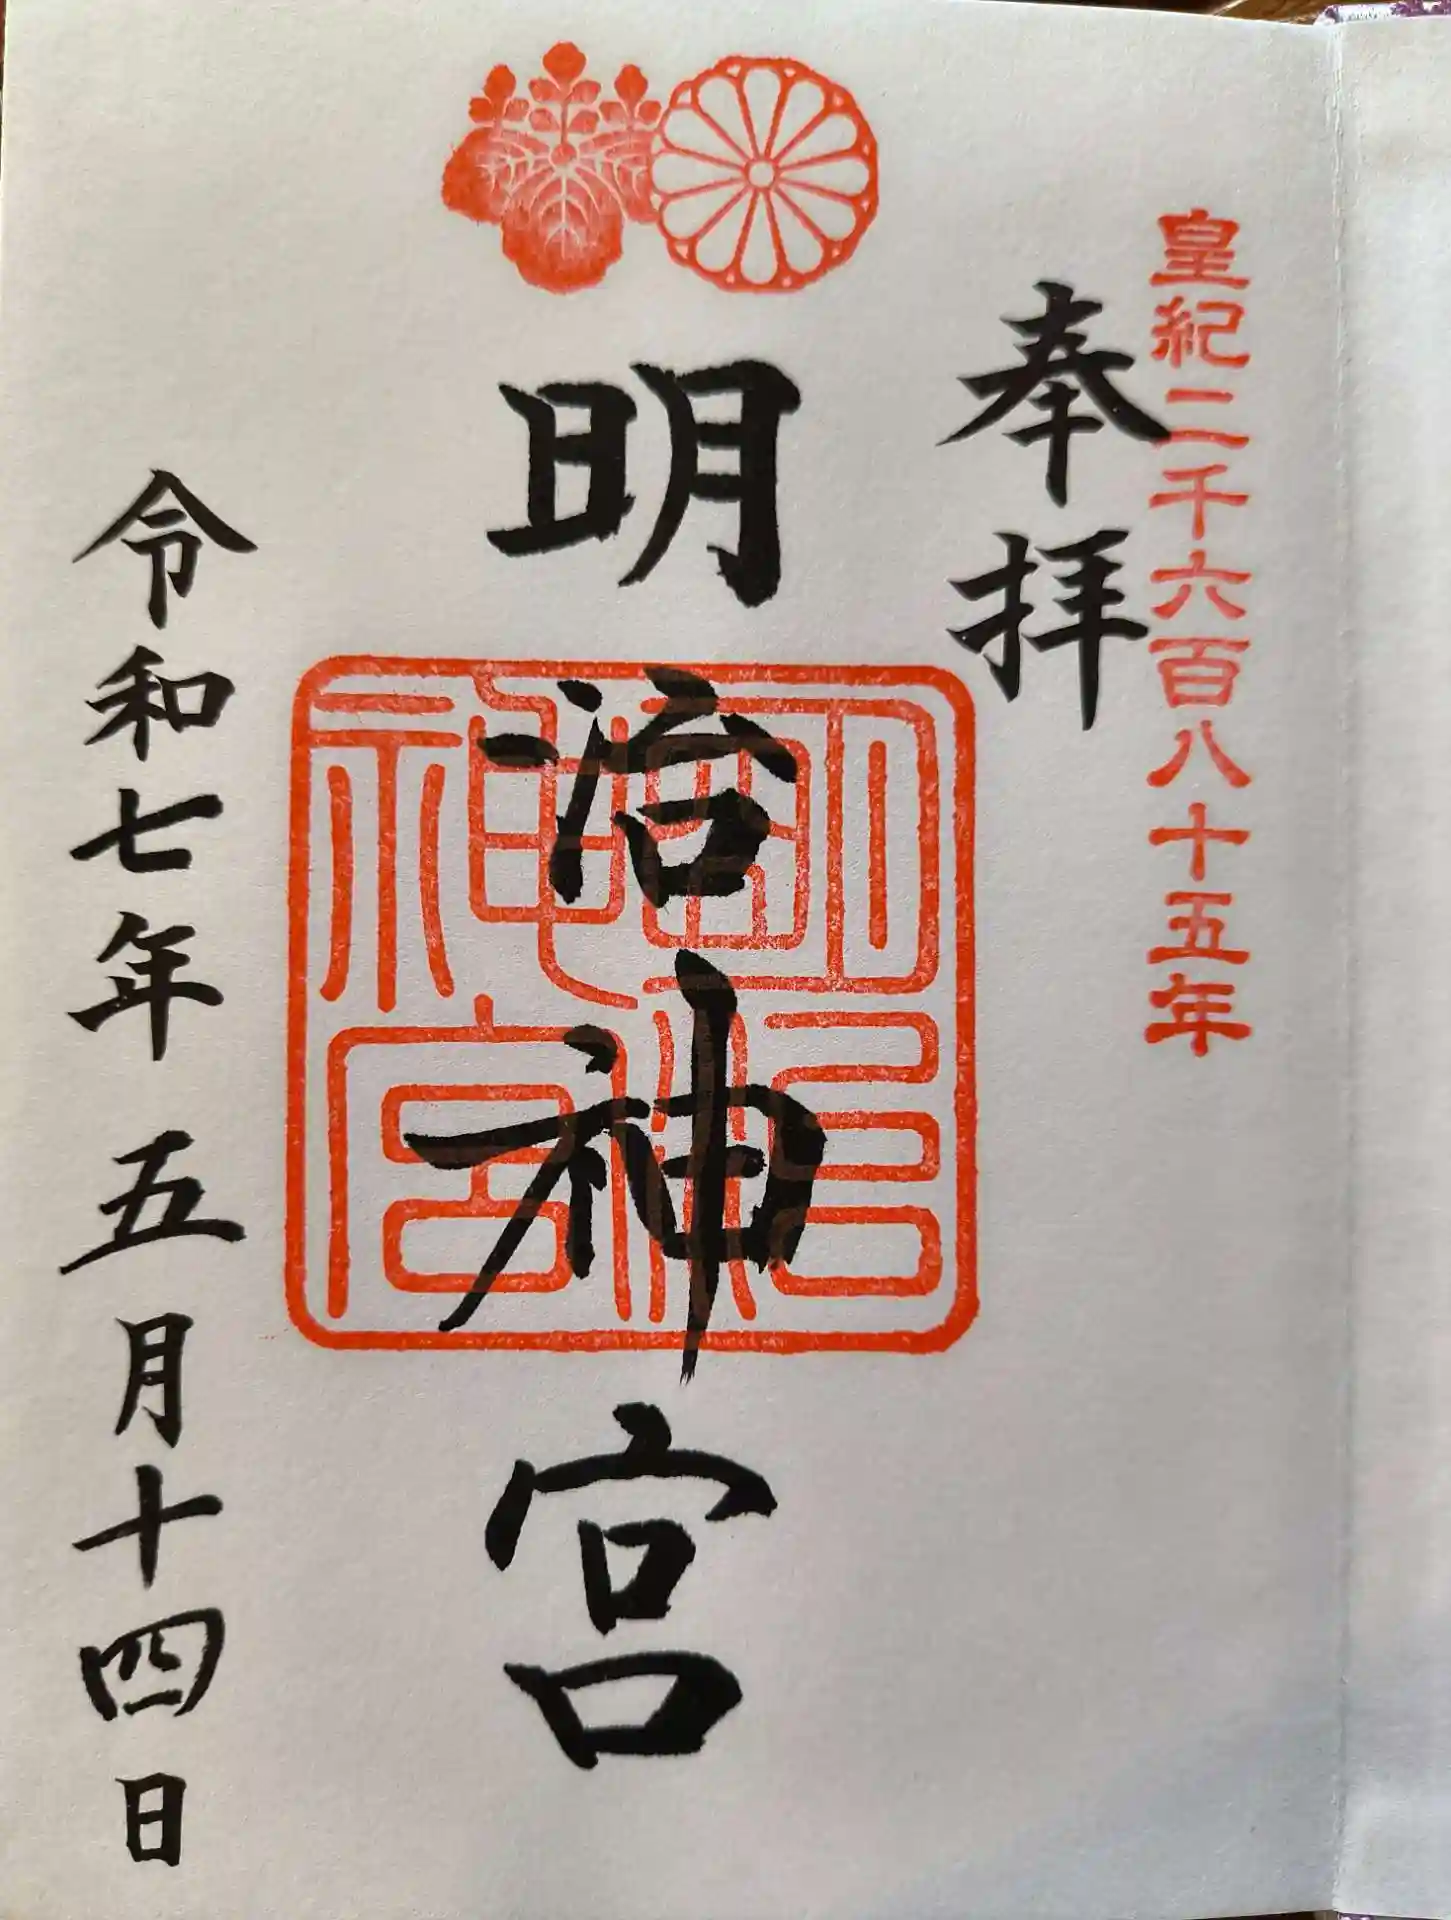 皇紀二千六百八十五年
奉拝
明治神宮
明治
神宮
令和七年五月十四日